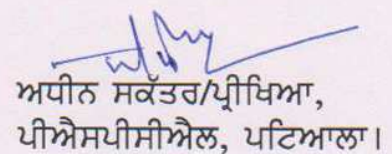 ਅਧੀਨ ਸਕੱਤਰ/ਪ੍ਰੀਖਿਆ,
ਪੀਐਸਪੀਸੀਐਲ, ਪਟਿਆਲਾ।